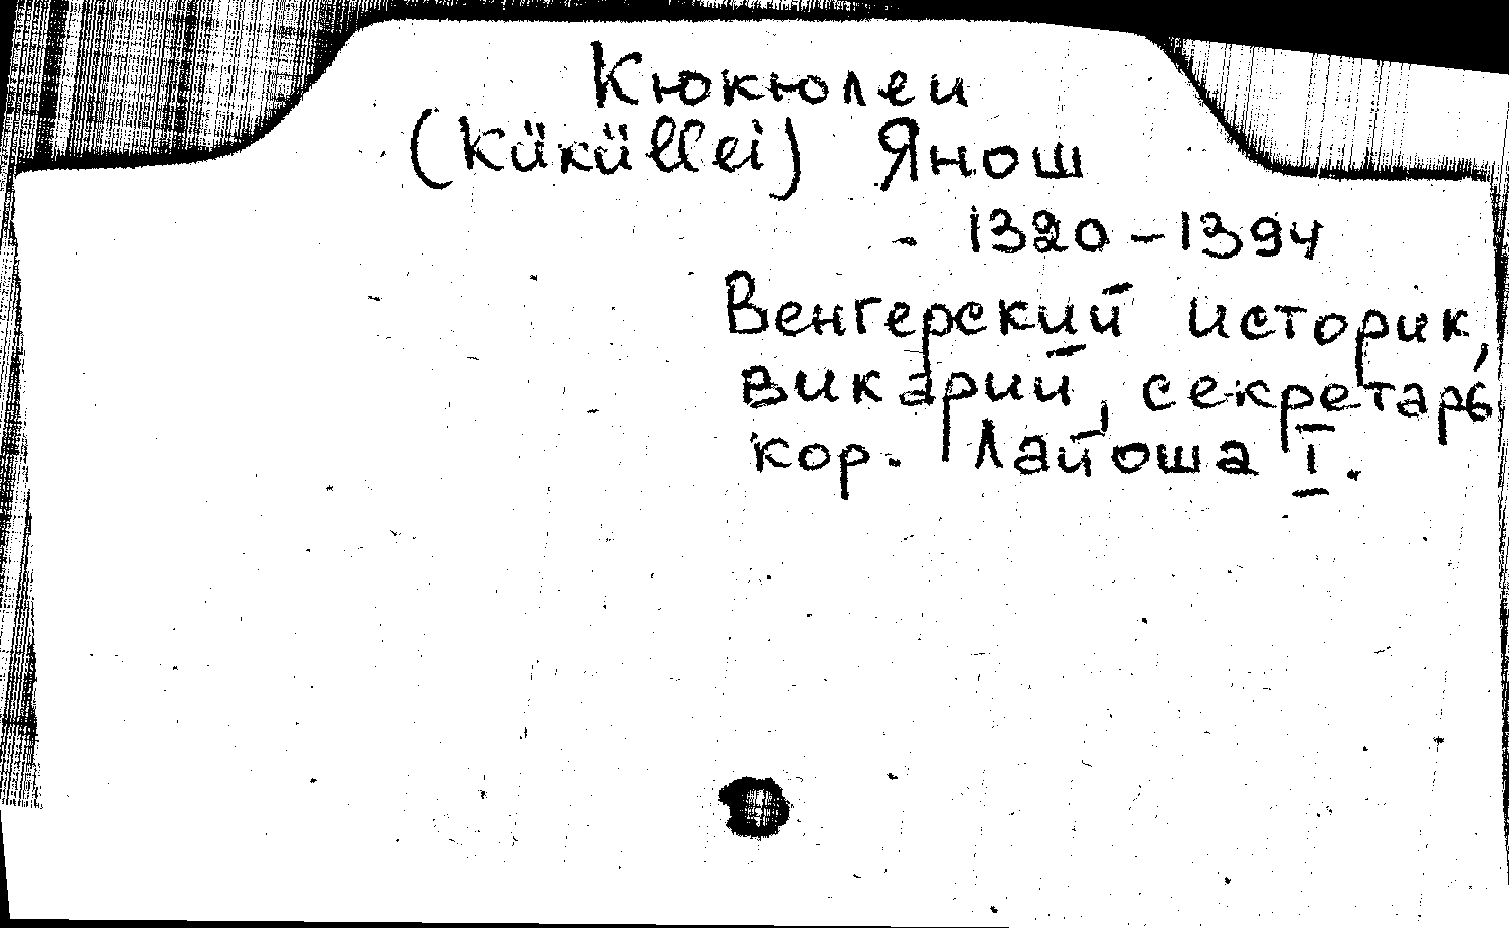 Кюкюлеи
(Kükü llei) Янош
- 1320-1394
Венгерский историк,
викарий, секретарь
кор. Лайоша I.